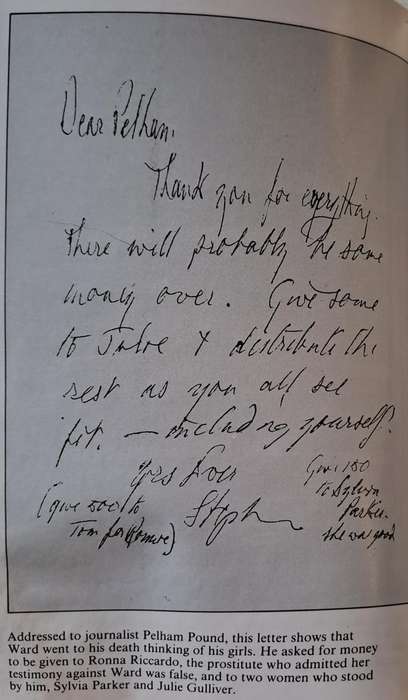 Dear Pelham.
Thank you for everything.
there will probably be some
money over. Give some
to Julie & distribute the
rest as you all see
fit. — including yourself.
Yrs Ever
Stephen
(give to
Tom for
Give 150
to Sylvia
Parker.
she was good
Addressed to journalist Pelham Pound, this letter shows that
Ward went to his death thinking of his girls. He asked for money
to be given to Ronna Riccardo, the prostitute who admitted her
testimony against Ward was false, and to two women who stood
by him, Sylvia Parker and Julie Gulliver.